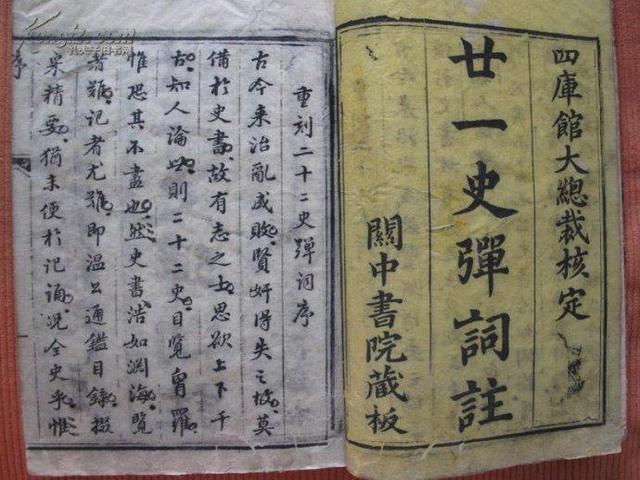 四庫館大總裁核定
廿一史彈詞註
關中書院藏板
重刻二十二史彈詞序
古今来治亂成敗賢奸得失之故莫
備扵史書故有志之士思欲上下千
古知人論世則二十二史目覧胷羅
惟恐其不盡也然史書浩如渊海覧
者難記者尤難即温公通鑑目録掇
采精要猶未便扵记誦况全史乎惟
序